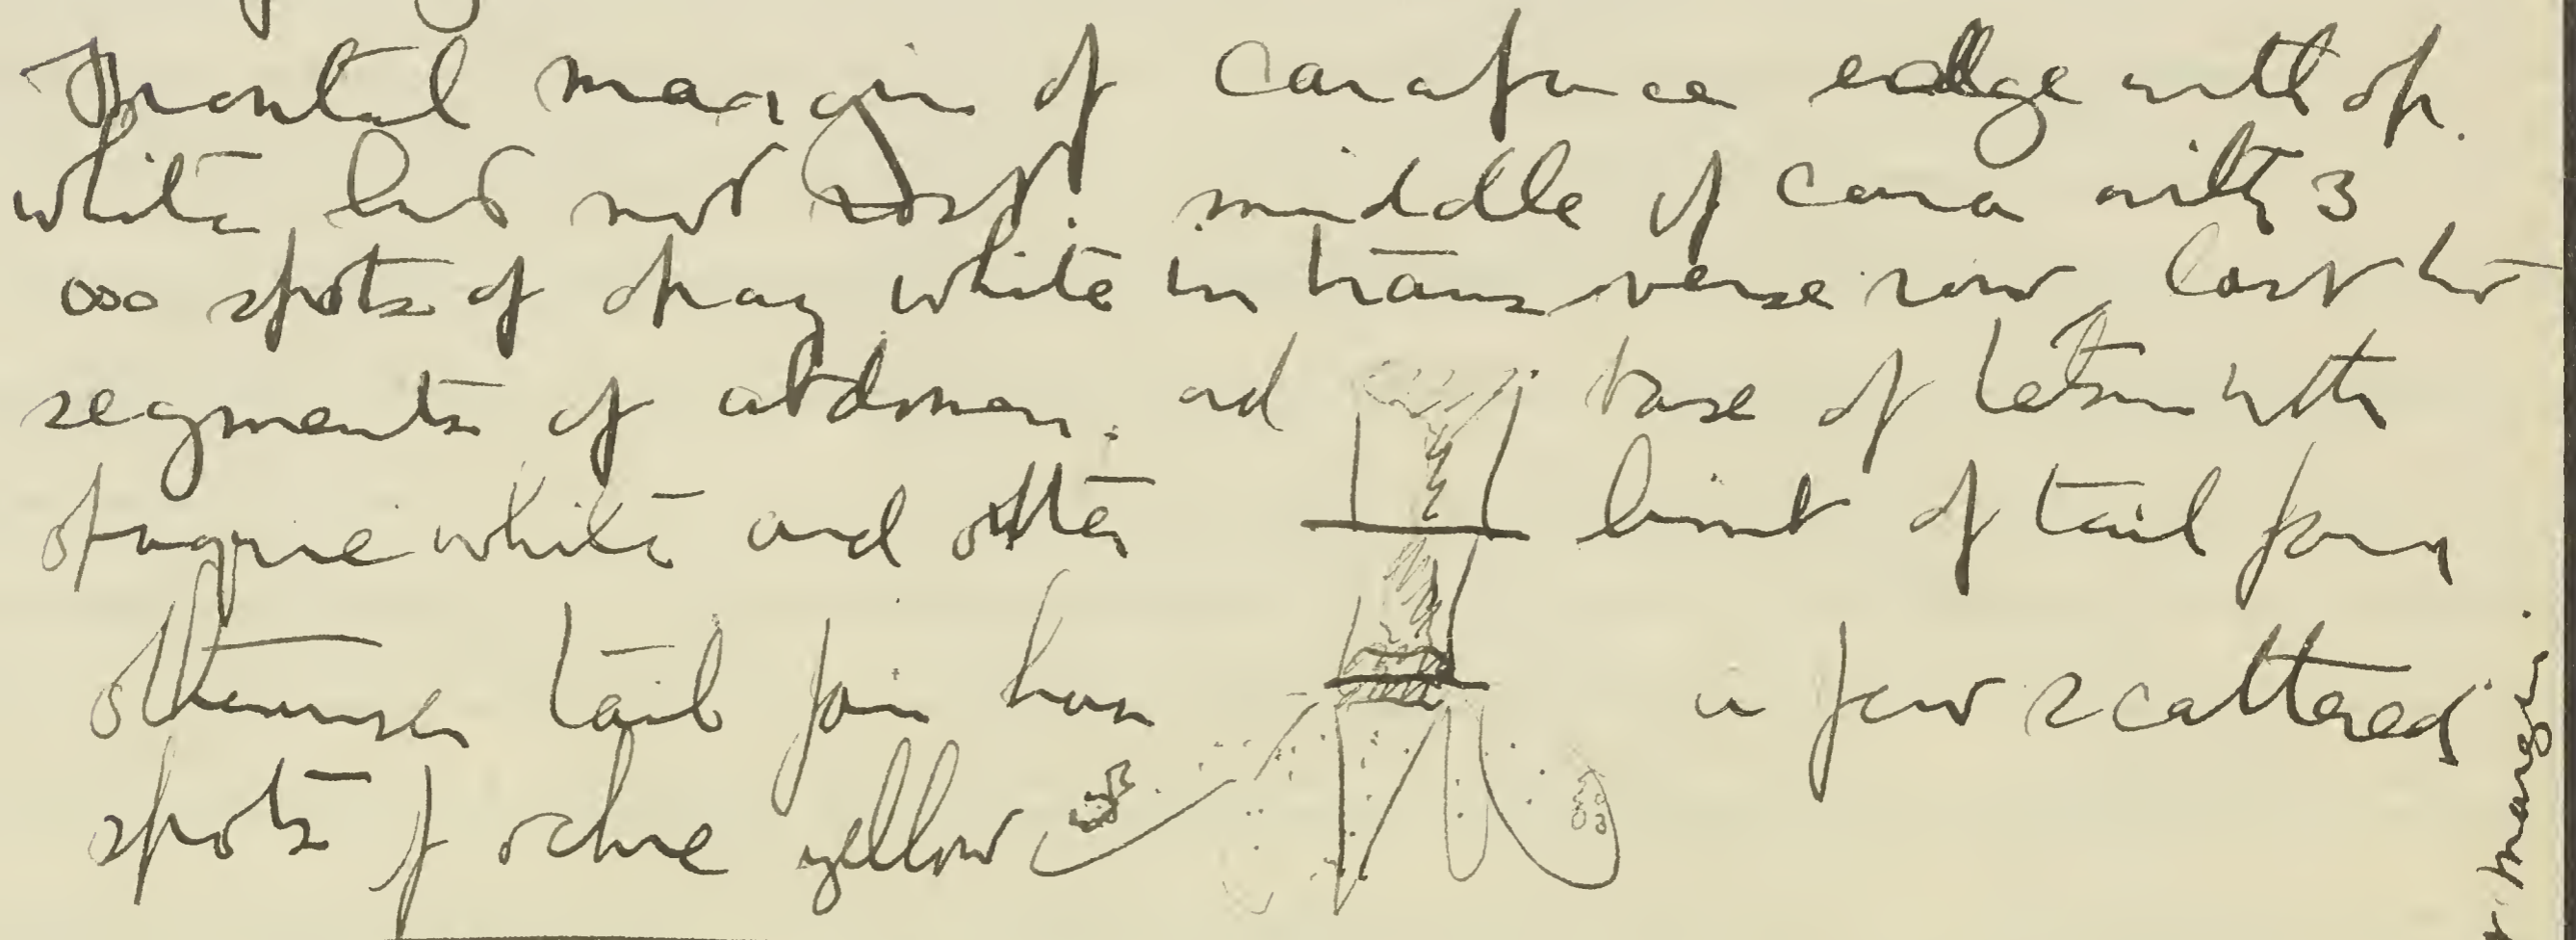 Frontal margin of carapace edge with op.
white but not rost. middle of cara with 3
ooo spots of opaq white in transverse row, last two
segments of abdomen. and base of telson with
opaque white and other limit of tail fan
otherwise tail fan has a few scattered
spots of ochre yellow
margin.